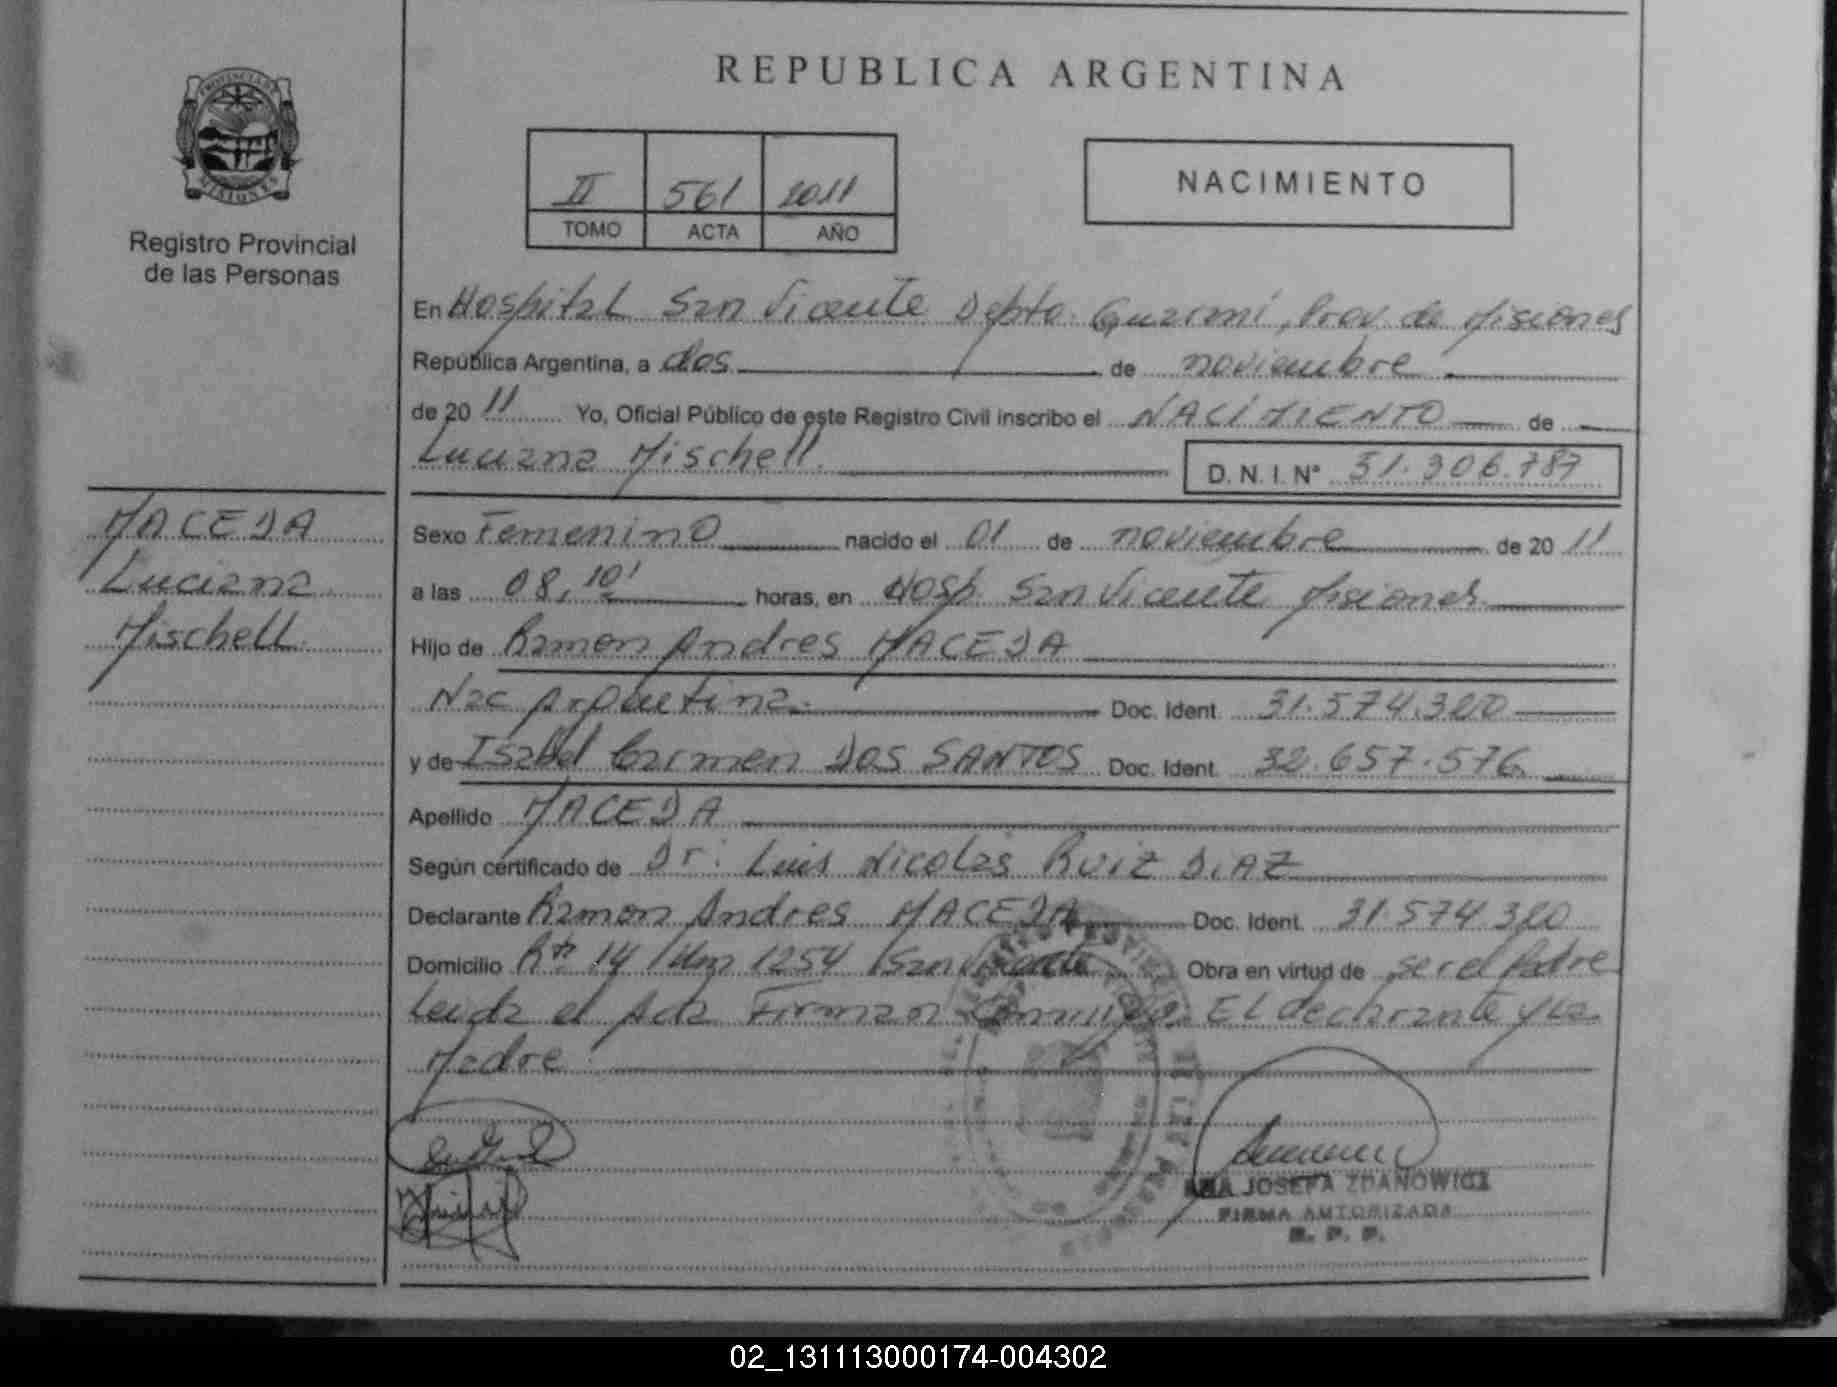 PROVINCIA DE
MISIONES
Registro Provincial
de las Personas
MACEDA
Luciana
Mischell.
REPUBLICA ARGENTINA
II 561 2011
TOMO ACTA AÑO
NACIMIENTO
En Hospital San Vicente Depto. Guaraní, Prov. de Misiones
República Argentina, a dos de noviembre
de 2011 Yo, Oficial Público de este Registro Civil inscribo el NACIMIENTO de
Luciana Mischell. D. N. I. Nº 51.306.787
Sexo Femenino nacido el 01 de noviembre de 2011
a las 08,10' horas, en Hosp. San Vicente Misiones
Hijo de Ramon Andres MACEDA
Nac Argentina. Doc. Ident. 31.574.320
y de Isabel Carmen DOS SANTOS Doc. Ident. 32.657.576
Apellido MACEDA
Según certificado de Dr. Luis Nicolas RUIZ DIAZ
Declarante Ramon Andres MACEDA Doc. Ident. 31.574.320
Domicilio Rta 14 Km 1254 San Vicente Obra en virtud de ser el Padre
Leida el Acta Firman Conmigo. El declarante y la
Madre
ANA JOSEFA ZDANOWICZ
FIRMA AUTORIZADA
R. P. P.
02_131113000174-004302